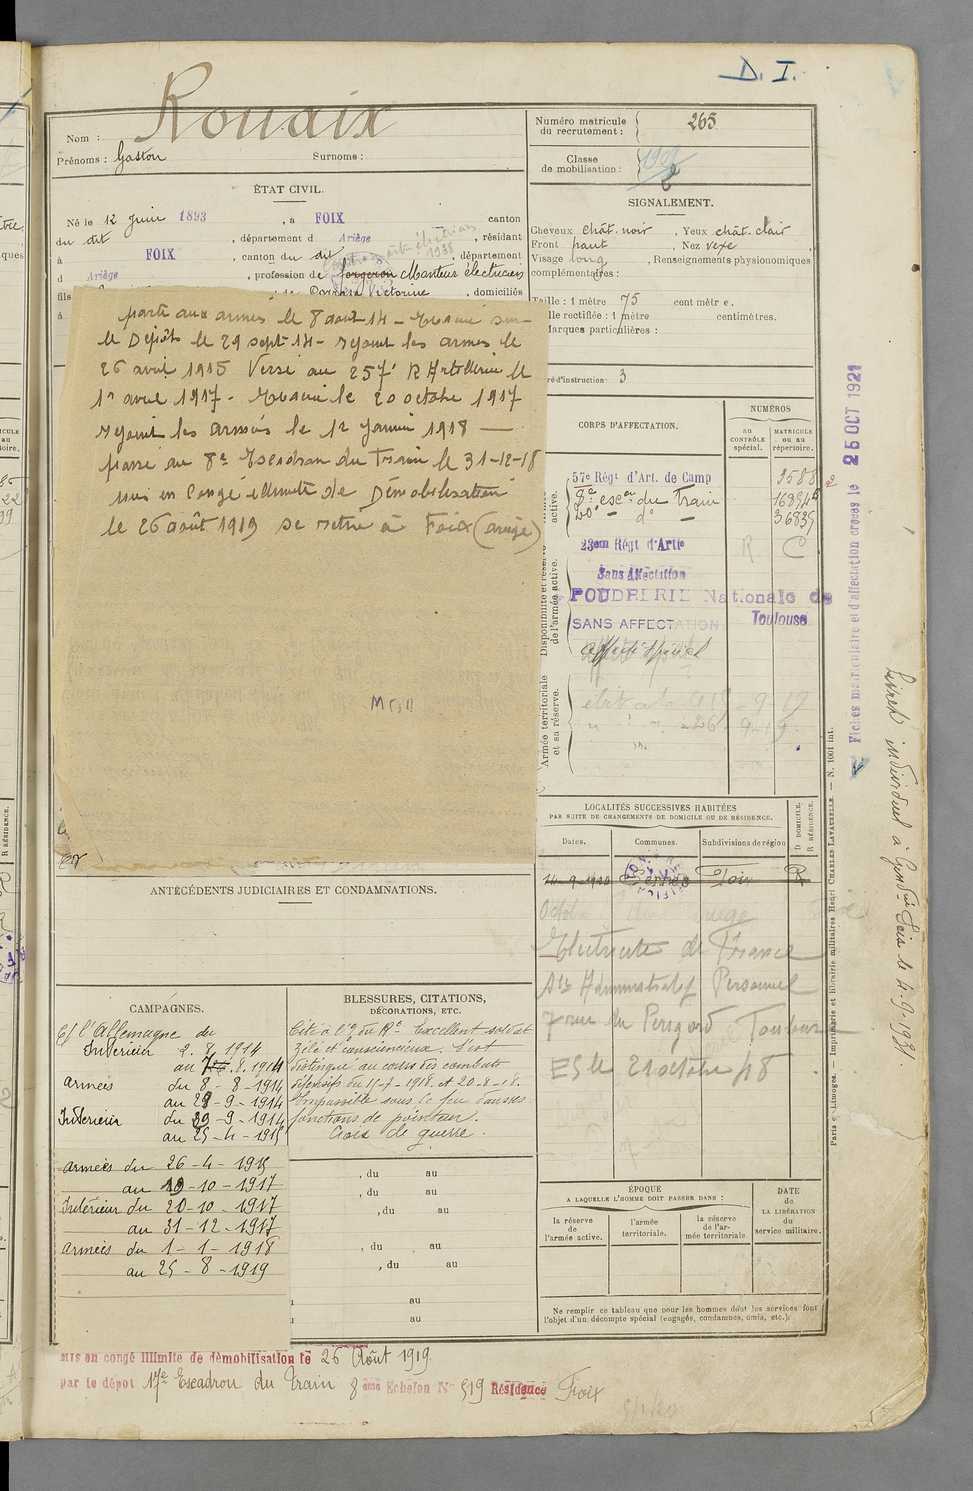 D. I.
Nom : Rouaix
Prénoms : Gaston Surnoms :
Numéro matricule du recrutement : 265
Classe de mobilisation :
ÉTAT CIVIL.
Né le 12 juin 1893, à FOIX canton
du dit, département d Ariège, résidant
à FOIX, canton du dit, département
d Ariège, profession de forgeron Monteur électricien
fils Victorine, domiciliés
à
SIGNALEMENT.
Cheveux chât. noir, Yeux chât. clair
Front haut, Nez vexe
Visage long, Renseignements physionomiques
complémentaires :
Taille : 1 mètre 75 centimètre.
lle rectifiée : 1 mètre centimètres.
Marques particulières :
ré d'instruction : 3
parti aux armées le 8 août 14 - Evacué sur
le Dépôts le 29 sept 14 - rejoint les armées le
26 avril 1915 Versé au 257e R Artillerie le
1er avril 1917 - Evacué le 20 octobre 1917
rejoint les armées le 1er Janvier 1918 —
passé au 8e Escadron du Train le 31-12-18
mis en Congé illimité de Démobilisation
le 26 août 1919 se retire à Foix (ariège)
CORPS D'AFFECTATION.
NUMÉROS
au CONTRÔLE spécial.
MATRICULE ou au répertoire.
active.
57e Régt d'Art. de Camp 9588
8e escon du Train 16894
20e - do -
Disponibilité et réserve de l'armée active.
23em Régt d'Artie R C
Sans Affectation
POUDRERIE Nationale de
Toulouse
SANS AFFECTATION
Affecté spécial
Armée territoriale et sa réserve.
LOCALITÉS SUCCESSIVES HABITÉES
PAR SUITE DE CHANGEMENTS DE DOMICILE OU DE RÉSIDENCE.
Dates. Communes. Subdivisions de région D DOMICILE. R RÉSIDENCE.
14-9-1920 Foix R
Electricité de France
Sce Administratif Personnel
7 rue du Périgord Toulouse
ES le 21 octobre 48
ANTÉCÉDENTS JUDICIAIRES ET CONDAMNATIONS.
CAMPAGNES.
C/ l'Allemagne du
Intérieur 2. 8. 1914
au 7. 8. 1914
armées du 8 - 8 - 1914
au 28 - 9 - 1914
Intérieur du 29 - 9 - 1914
au 25 - 4 - 1915
armées du 26 - 4 - 1915
au 19 - 10 - 1917
Intérieur du 20 - 10 - 1917
au 31 - 12 - 1917
armées du 1 - 1 - 1918
au 25 - 8 - 1919
BLESSURES, CITATIONS,
DÉCORATIONS, ETC.
Cité à l'o/ du Rt Excellent soldat
zélé et consciencieux. S'est
distingué au cours des combats
défensifs du 15-7-1918 et 20-8-18.
Impassible sous le feu dans ses
fonctions de pointeur.
Croix de guerre.
, du au
, du au
, du au
, du au
, du au
au
au
ÉPOQUE
A LAQUELLE L'HOMME DOIT PASSER DANS :
la réserve de l'armée active.
l'armée territoriale.
la réserve de l'armée territoriale.
DATE de LA LIBÉRATION du service militaire.
Ne remplir ce tableau que pour les hommes dont les services font
l'objet d'un décompte spécial (engagés, condamnés, omis, etc.).
Mis en congé illimité de démobilisation le 26 Août 1919
par le dépot 17e Escadron du Train 8 ème Echelon N° 519 Résidence Foix
Fiches matriculaire et d'affectation créées le 25 OCT 1921
Livret individuel à Gendrie Foix le 4-9-1931.
Paris et Limoges. — Imprimerie et librairie militaires Henri CHARLES-LAVAUZELLE. — N. 1001 int.